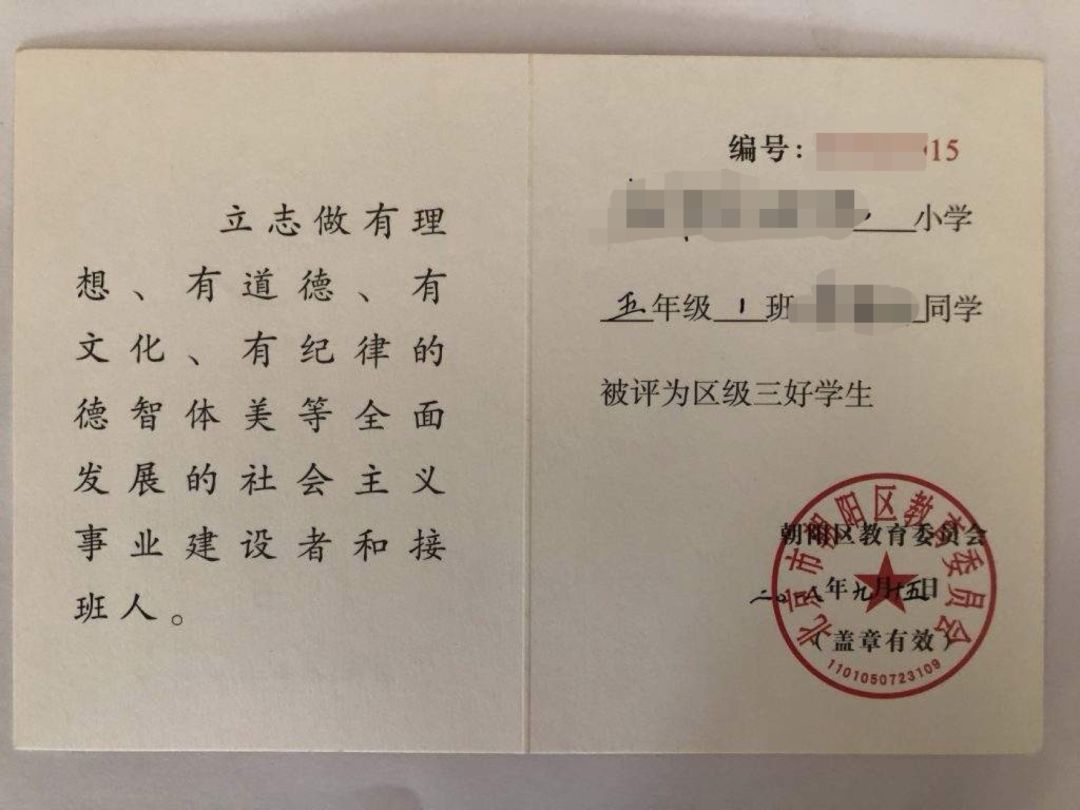 立志做有理
想、有道德、有
文化、有纪律的
德智体美等全面
发展的社会主义
事业建设者和接
班人。
编号：15
小学
五年级1班同学
被评为区级三好学生
北京市朝阳区教育委员会
朝阳区教育委员会
二〇一八年九月十五日
（盖章有效）
1101050723109